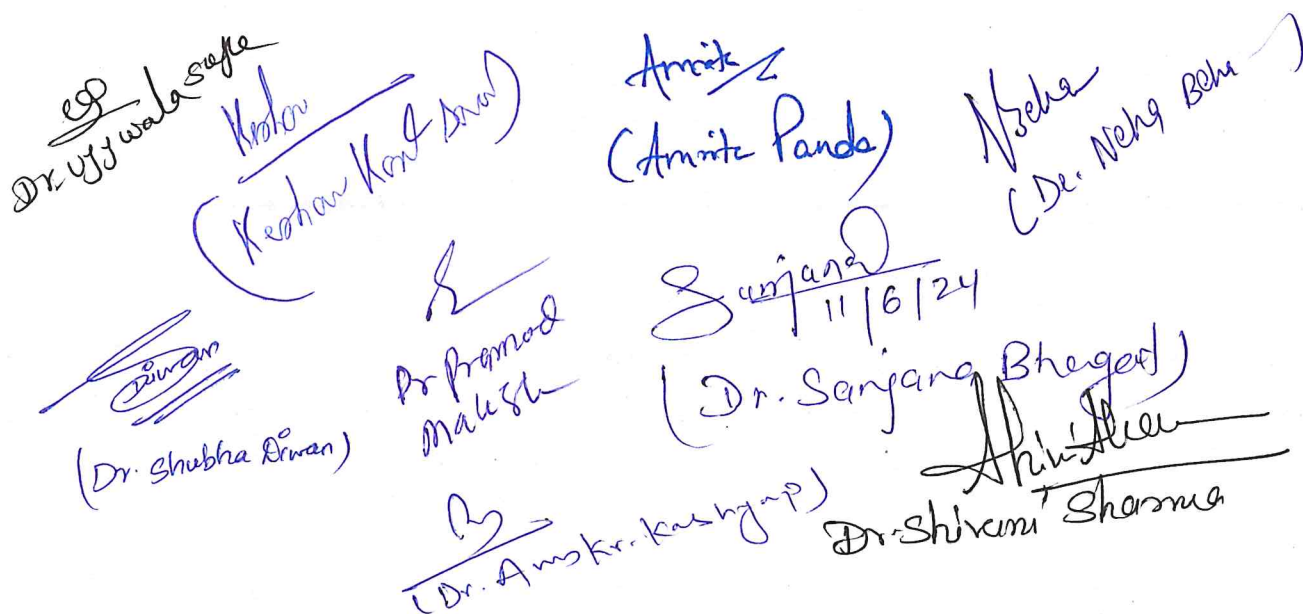 Dr. Ujjwala Supe
Keshav
(Keshav Kant
Amrita
(Amrita Panda)
NBehar
(Dr. Neha Behar)
Diwan
(Dr. Shubha Diwan)
Dr Pramod
Mahish
Sanjana
11/6/24
(Dr. Sanjana Bhagat)
Kashyap)
Dr. Shivani Sharma